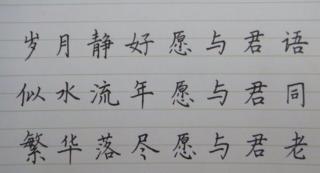 岁月静好愿与君语
似水流年愿与君同
繁华落尽愿与君老